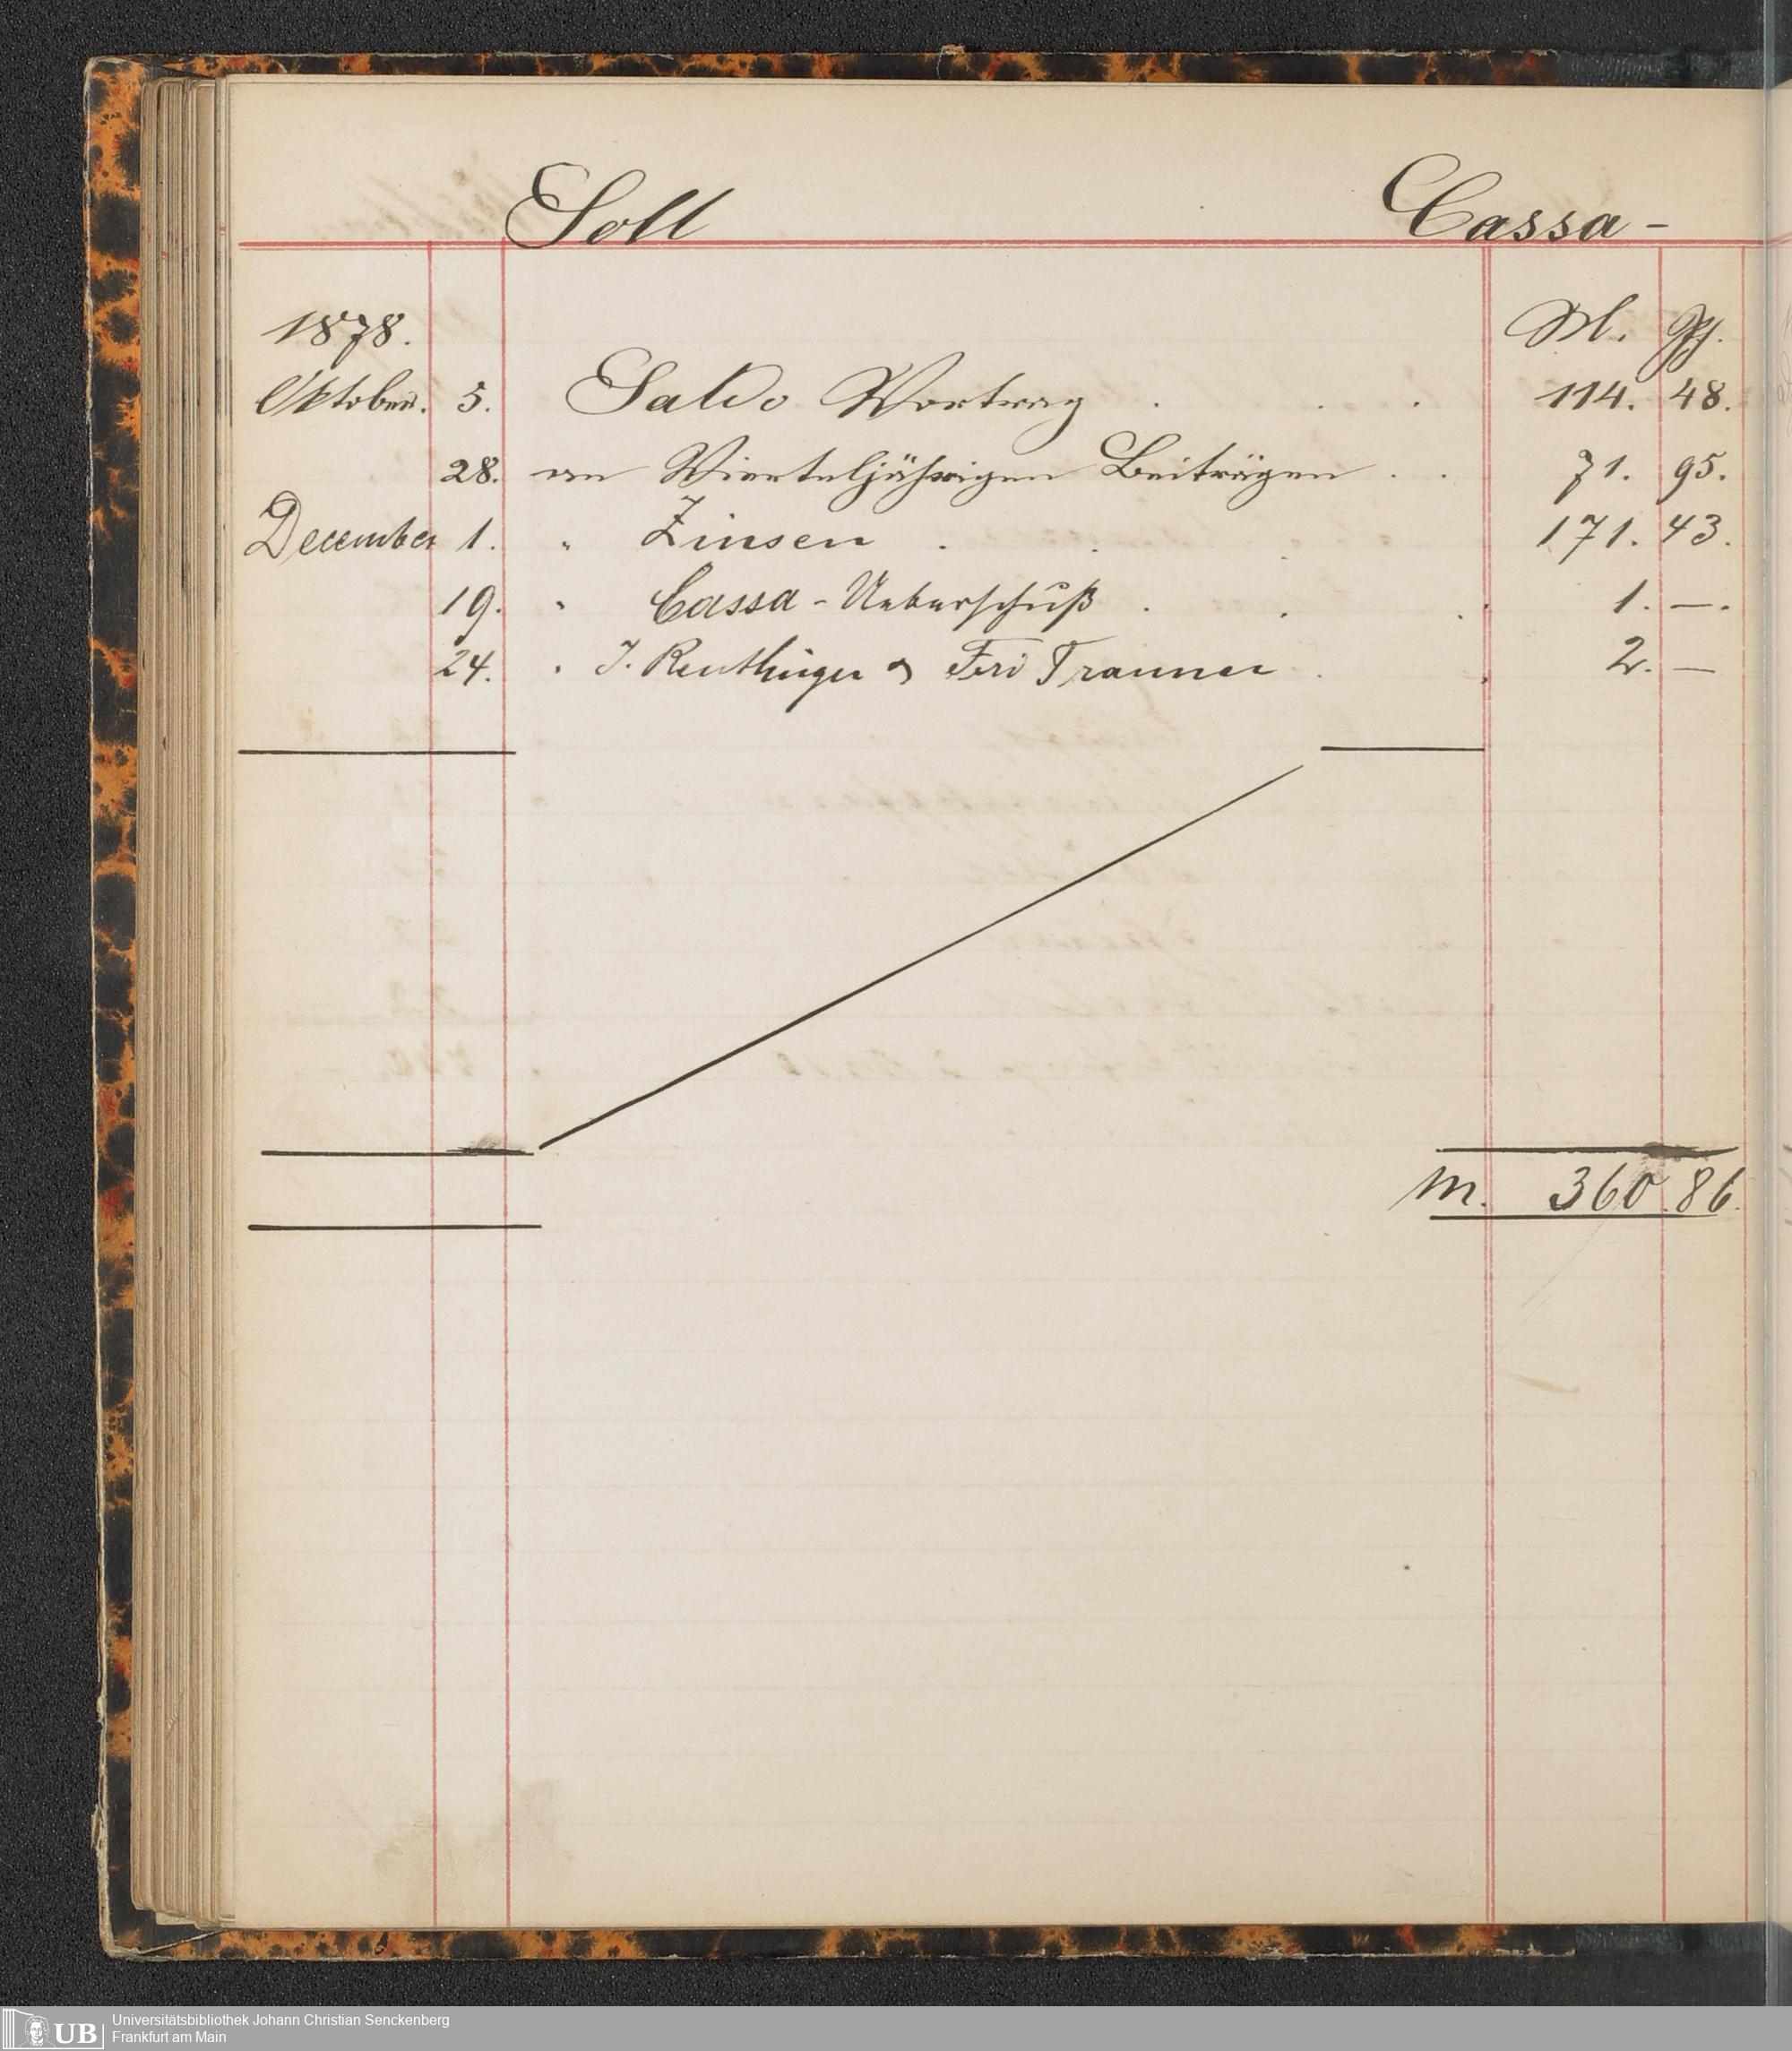 Soll Cassa-
1878. M. Pf.
Oktober. 5. Saldo Vortrag . . . 114. 48.
28. an Vierteljährigen Beiträgen . . 71. 95.
December 1. " Zinsen . . . 171. 43.
19. " Cassa-Ueberschuß . . . 1. —.
24. " J. Reuthinger & Trauner . . 2. —
M. 360.86.
UB Universitätsbibliothek Johann Christian Senckenberg
Frankfurt am Main